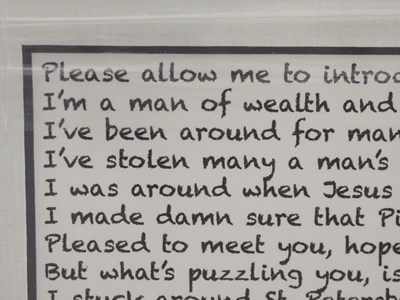 Please allow me to introd
I'm a man of wealth and
I've been around for man
I've stolen many a man's
I was around when Jesus
I made damn sure that Pi
Pleased to meet you, hope
But what's puzzling you, is
I stuck around St. Petersb